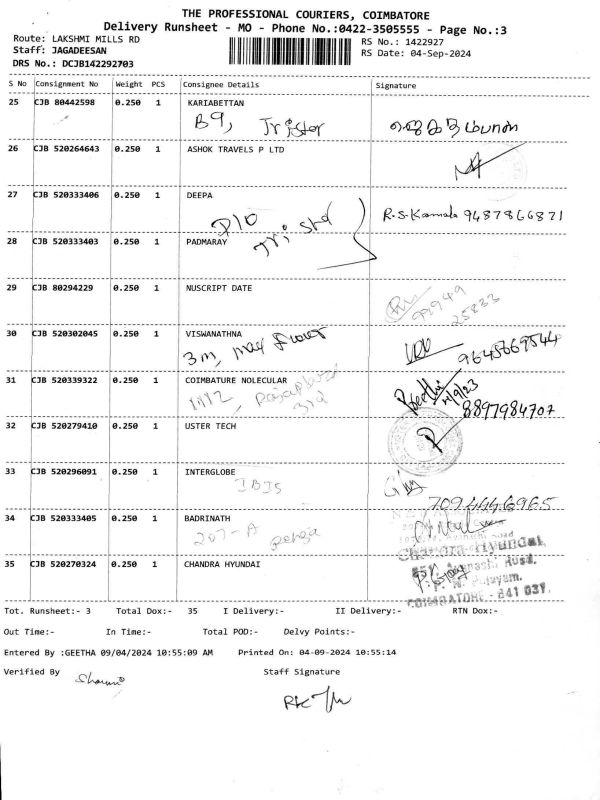 THE PROFESSIONAL COURIERS, COIMBATORE
Delivery Runsheet - MO - Phone No.:0422-3505555 - Page No.:3
Route: LAKSHMI MILLS RD
RS No.: 1422927
Staff: JAGADEESAN
RS Date: 04-Sep-2024
DRS No.: DCJB142292703
S No Consignment No Weight PCS Consignee Details Signature
25 CJB 80442598 0.250 1 KARIABETTAN
B9,
26 CJB 520264643 0.250 1 ASHOK TRAVELS P LTD
27 CJB 520333406 0.250 1 DEEPA
R.S.Kamala 9487866871
28 CJB 520333403 0.250 1 PADMARAY
29 CJB 80294229 0.250 1 NUSCRIPT DATE
99949
25833
30 CJB 520302045 0.250 1 VISWANATHNA
3m,
9645669544
31 CJB 520339322 0.250 1 COIMBATURE NOLECULAR
4/9/23
8897984707
32 CJB 520279410 0.250 1 USTER TECH
33 CJB 520296091 0.250 1 INTERGLOBE
IBIS
7094446965
34 CJB 520333405 0.250 1 BADRINATH
207-A
Chandra Hyundai,
35 CJB 520270324 0.250 1 CHANDRA HYUNDAI
COIMBATORE - 641 037.
Tot. Runsheet:- 3 Total Dox:- 35 I Delivery:- II Delivery:- RTN Dox:-
Out Time:- In Time:- Total POD:- Delvy Points:-
Entered By :GEETHA 09/04/2024 10:55:09 AM Printed On: 04-09-2024 10:55:14
Verified By Staff Signature